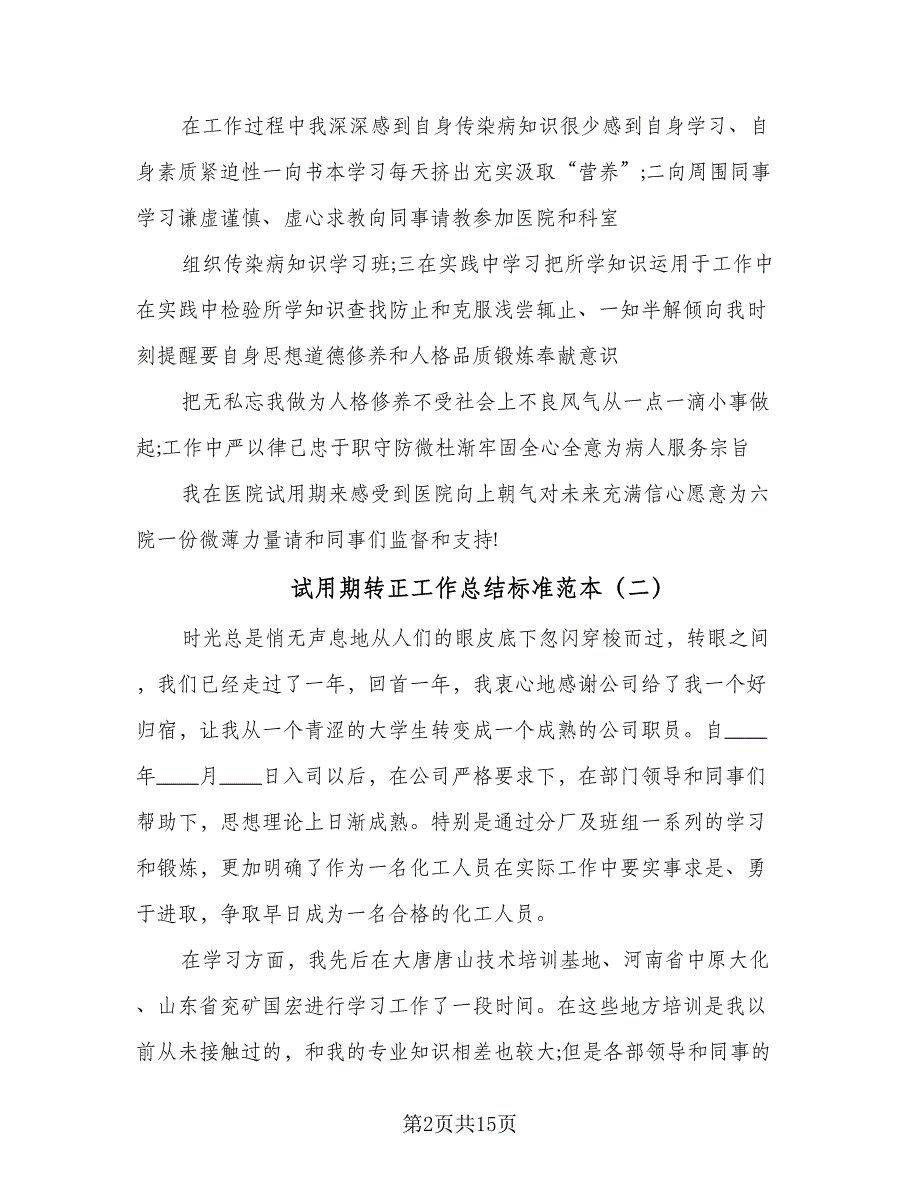 在工作过程中我深深感到自身传染病知识很少感到自身学习、自
身素质紧迫性一向书本学习每天挤出充实汲取“营养”;二向周围同事
学习谦虚谨慎、虚心求教向同事请教参加医院和科室
组织传染病知识学习班;三在实践中学习把所学知识运用于工作中
在实践中检验所学知识查找防止和克服浅尝辄止、一知半解倾向我时
刻提醒要自身思想道德修养和人格品质锻炼奉献意识
把无私忘我做为人格修养不受社会上不良风气从一点一滴小事做
起;工作中严以律己忠于职守防微杜渐牢固全心全意为病人服务宗旨
我在医院试用期来感受到医院向上朝气对未来充满信心愿意为六
院一份微薄力量请和同事们监督和支持!
试用期转正工作总结标准范本（二）
时光总是悄无声息地从人们的眼皮底下忽闪穿梭而过，转眼之间
，我们已经走过了一年，回首一年，我衷心地感谢公司给了我一个好
归宿，让我从一个青涩的大学生转变成一个成熟的公司职员。自____
年____月____日入司以后，在公司严格要求下，在部门领导和同事们
帮助下，思想理论上日渐成熟。特别是通过分厂及班组一系列的学习
和锻炼，更加明确了作为一名化工人员在实际工作中要实事求是、勇
于进取，争取早日成为一名合格的化工人员。
在学习方面，我先后在大唐唐山技术培训基地、河南省中原大化
、山东省兖矿国宏进行学习工作了一段时间。在这些地方培训是我以
前从未接触过的，和我的专业知识相差也较大;但是各部领导和同事的
第2页共15页